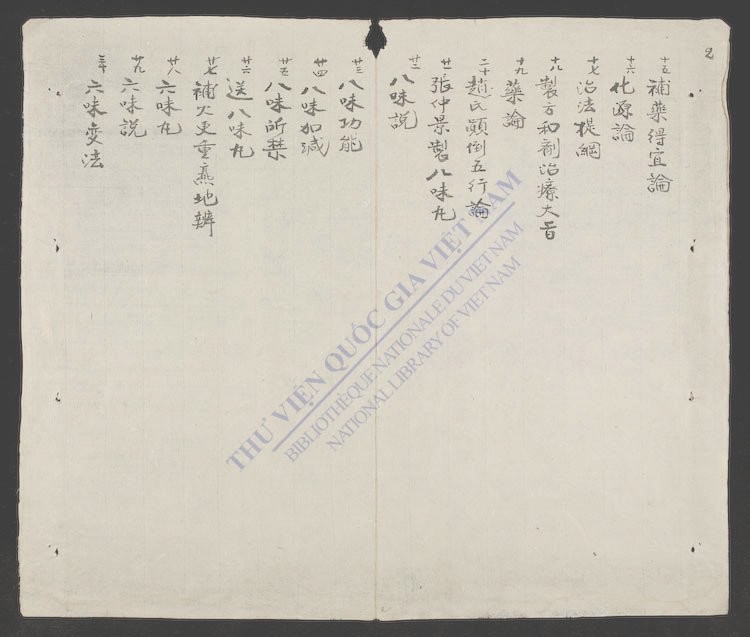 2
十五 補藥得宜論
十六 化源論
十七 治法提綱
十八 製方和劑治療大旨
十九 藥論
二十 趙氏顛倒五行論
廿一 張仲景製八味丸
廿二 八味説
廿三 八味功能
廿四 八味加減
廿五 八味所禁
廿六 送八味丸
廿七 補火更重熹地辨
廿八 六味丸
廿九 六味説
三十 六味变法
THƯ VIỆN QUỐC GIA VIỆT NAM
BIBLIOTHÈQUE NATIONALE DU VIETNAM
NATIONAL LIBRARY OF VIETNAM